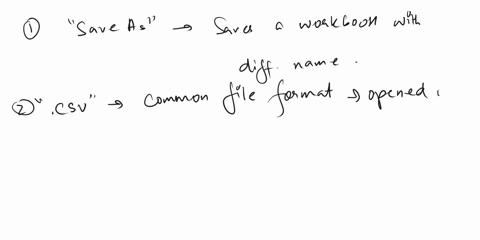 ① "Save As" → Saves a workbook with
diff. name.
② ".csv" → Common file format → opened